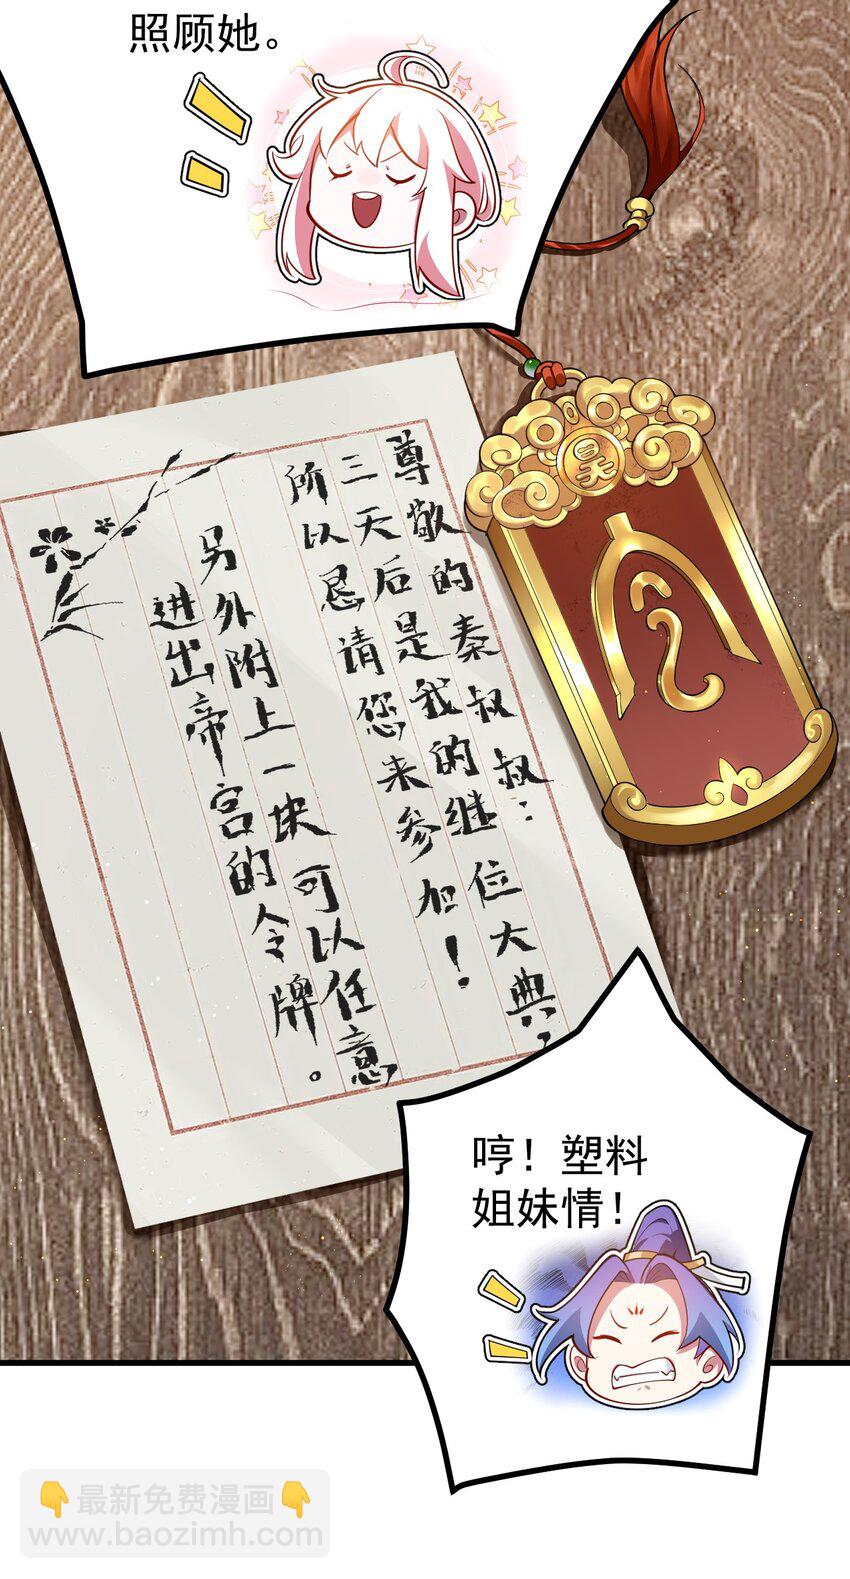 照顾她。
昊
尊敬的秦叔叔：
三天后是我的继位大典，
所以恳请您来参加！
另外附上一块可以任意
进出帝宫的令牌。
哼！塑料
姐妹情！
最新免费漫画
www.baozimh.com